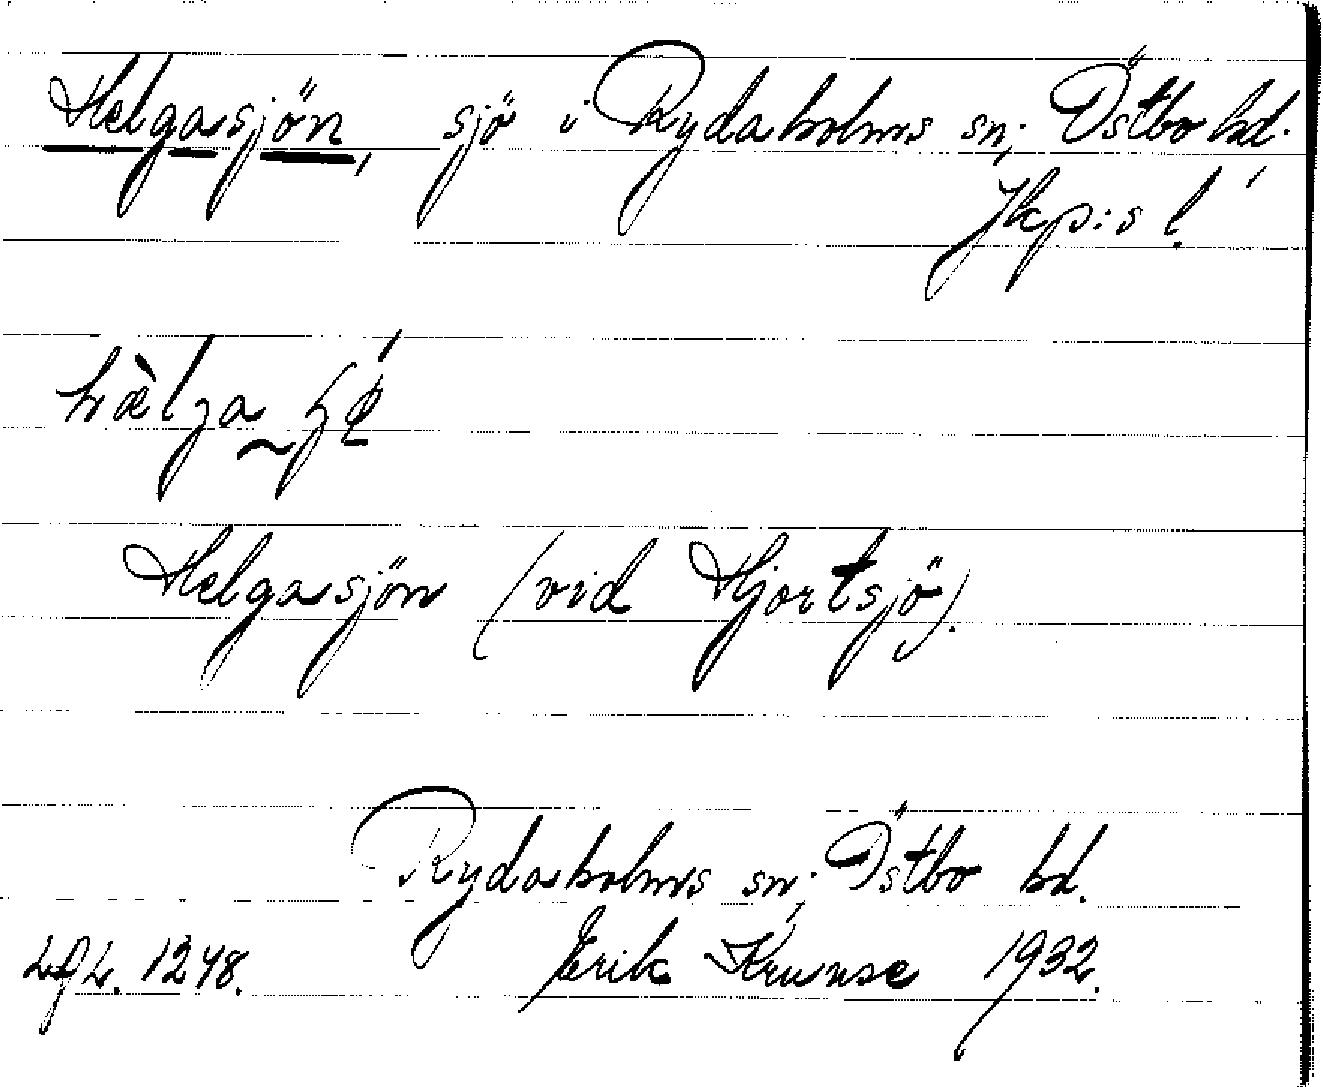 Helgasjön, sjö i Rydaholms sn; Östbo hd.
Jkp:s l.
Helgasjön (vid Hjortsjö).
Rydaholms sn; Östbo hd.
1248. Erik Kruuse 1932.